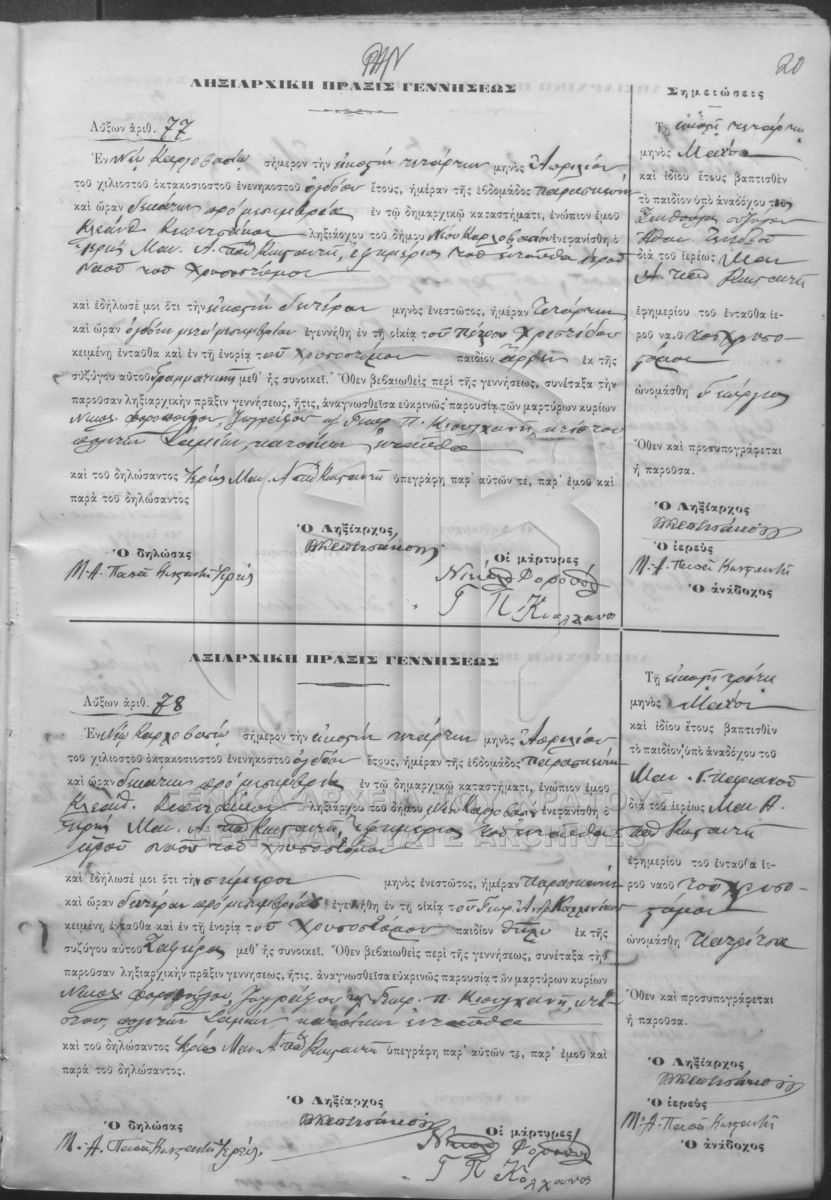 20
ΛΗΞΙΑΡΧΙΚΗ ΠΡΑΞΙΣ ΓΕΝΝΗΣΕΩΣ
Αὔξων ἀριθ. 77
Ἐν Νέῳ Καρλοβασίῳ σήμερον τὴν εἰκοστὴν τετάρτην μηνὸς Ἀπριλίου
τοῦ χιλιοστοῦ ὀκτακοσιοστοῦ ἐνενηκοστοῦ ὀγδόου ἔτους, ἡμέραν τῆς ἑβδομάδος Παρασκευὴν
καὶ ὥραν δεκάτην πρὸ μεσημβρίας ἐν τῷ δημαρχικῷ καταστήματι, ἐνώπιον ἐμοῦ
Κλεάνθ. ληξιάρχου τοῦ δήμου Νέου Καρλοβασίου ἐνεφανίσθη ὁ
Ἱερεὺς Μαν. Α. Παπᾶ ἐφημέριος τοῦ ἐνταῦθα ἱεροῦ
ναοῦ τοῦ Χρυσοστόμου
καὶ ἐδήλωσέ μοι ὅτι τὴν εἰκοστὴν δευτέραν μηνὸς ἐνεστῶτος, ἡμέραν Τετάρτην
καὶ ὥραν ὀγδόην μετὰ μεσημβρίαν ἐγεννήθη ἐν τῇ οἰκίᾳ τοῦ Πέτρου Χρηστίδου
κειμένῃ ἐνταῦθα καὶ ἐν τῇ ἐνορίᾳ τοῦ Χρυσοστόμου παιδίον ἄρρεν ἐκ τῆς
συζύγου αὐτοῦ Γραμματικῆς μεθ᾽ ἧς συνοικεῖ. Ὅθεν βεβαιωθεὶς περὶ τῆς γεννήσεως, συνέταξα τὴν
παροῦσαν ληξιαρχικὴν πρᾶξιν γεννήσεως, ἥτις, ἀναγνωσθεῖσα εὐκρινῶς παρουσίᾳ τῶν μαρτύρων κυρίων
Νικολ. Φοροπούλου, ζωγράφου καὶ Γεωρ. Π. κτίστου
πολιτῶν Σαμίων, κατοίκων ἐνταῦθα
καὶ τοῦ δηλώσαντος Ἱερέως Μαν. Α. Παπᾶ ὑπεγράφη παρ᾽ αὐτῶν τε, παρ᾽ ἐμοῦ καὶ
παρὰ τοῦ δηλώσαντος
Ὁ Ληξίαρχος
Ὁ δηλώσας
Μ. Α. Παπᾶ Ἱερεύς
Οἱ μάρτυρες
Γ Π.
Σημειώσεις
Τῇ εἰκοστῇ τετάρτῃ
μηνὸς Μαΐου
καὶ ἰδίου ἔτους βαπτισθὲν
τὸ παιδίον ὑπὸ ἀναδόχου τῆς
συζύγου
διὰ τοῦ ἱερέως Μαν
Α. Παπᾶ
ἐφημερίου τοῦ ἐνταῦθα ἱε-
ροῦ ναοῦ τοῦ Χρυσο-
στόμου
ὠνομάσθη Γεώργιος
Ὅθεν καὶ προσυπογράφεται
ἡ παροῦσα.
Ὁ Ληξίαρχος
Ὁ ἱερεὺς
Μ. Α. Παπᾶ
Ὁ ἀνάδοχος
ΛΞΙΑΡΧΙΚΗ ΠΡΑΞΙΣ ΓΕΝΝΗΣΕΩΣ
Αὔξων ἀριθ. 78
Ἐν Νέῳ Καρλοβασίῳ σήμερον τὴν εἰκοστὴν τετάρτην μηνὸς Ἀπριλίου
τοῦ χιλιοστοῦ ὀκτακοσιοστοῦ ἐνενηκοστοῦ ὀγδόου ἔτους, ἡμέραν τῆς ἑβδομάδος Παρασκευὴν
καὶ ὥραν δεκάτην πρὸ μεσημβρίας ἐν τῷ δημαρχικῷ καταστήματι, ἐνώπιον ἐμοῦ
Κλεάνθ. ληξιάρχου τοῦ δήμου Νέου Καρλοβασίου ἐνεφανίσθη ὁ
Ἱερεὺς Μαν. Α. Παπᾶ ἐφημέριος τοῦ ἐνταῦθα
ἱεροῦ ναοῦ τοῦ Χρυσοστόμου
καὶ ἐδήλωσέ μοι ὅτι τὴν σήμερον μηνὸς ἐνεστῶτος, ἡμέραν Παρασκευὴν
καὶ ὥραν δευτέραν πρὸ μεσημβρίας ἐγεννήθη ἐν τῇ οἰκίᾳ τοῦ Γεωρ.
κειμένῃ ἐνταῦθα καὶ ἐν τῇ ἐνορίᾳ τοῦ Χρυσοστόμου παιδίον θῆλυ ἐκ τῆς
συζύγου αὐτοῦ μεθ᾽ ἧς συνοικεῖ. Ὅθεν βεβαιωθεὶς περὶ τῆς γεννήσεως, συνέταξα τὴν
παροῦσαν ληξιαρχικὴν πρᾶξιν γεννήσεως, ἥτις, ἀναγνωσθεῖσα εὐκρινῶς παρουσίᾳ τῶν μαρτύρων κυρίων
Νικολ. Φοροπούλου, ζωγράφου καὶ Γεωρ. Π. κτί-
στου, πολιτῶν Σαμίων κατοίκων ἐνταῦθα
καὶ τοῦ δηλώσαντος Ἱερέως Μαν. Α. Παπᾶ ὑπεγράφη παρ᾽ αὐτῶν τε, παρ᾽ ἐμοῦ καὶ
παρὰ τοῦ δηλώσαντος.
Ὁ Ληξίαρχος
Ὁ δηλώσας
Μ. Α. Παπᾶ Ἱερεύς
Οἱ μάρτυρες
Γ Π
Τῇ εἰκοστῇ τρίτῃ
μηνὸς Μαΐου
καὶ ἰδίου ἔτους βαπτισθὲν
τὸ παιδίον ὑπὸ ἀναδόχου τοῦ
Μαν.
διὰ τοῦ ἱερέως Μαν Α.
Παπᾶ
ἐφημερίου τοῦ ἐνταῦθα ἱε-
ροῦ ναοῦ τοῦ Χρυσο-
στόμου
ὠνομάσθη
Ὅθεν καὶ προσυπογράφεται
ἡ παροῦσα.
Ὁ Ληξίαρχος
Ὁ ἱερεὺς
Μ. Α. Παπᾶ
Ὁ ἀνάδοχος
ΓΕΝΙΚΑ ΑΡΧΕΙΑ ΤΟΥ ΚΡΑΤΟΥΣ
GENERAL STATE ARCHIVES